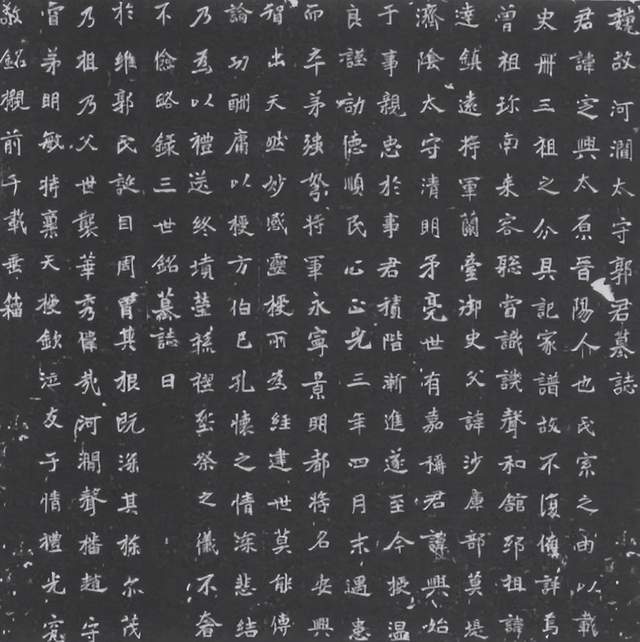 魏故河澗太守郭君墓誌
君諱定興太原晉陽人也氏宗之由以載
史冊三祖之分具記家譜故不復備詳焉
曾祖珍南来客聡當識譏聲和館邳祖諱
達鎮遠将軍蘭臺御史父諱沙庫部莫堤
濟陰太守清明柔亮世有嘉稱君諱興始
于事親忠於事君積階漸進遂至今授温
良謹勖德順民心正光三年四月末遇患
而卒弟強弩将軍永寧景明都将名安興
智出天然妙感靈授所為經建世莫能傳
論功酬庸以授方伯巳孔懷之情深悲結
乃為以禮送終墳塋槨祭之儀不奢
不儉略錄三世銘墓誌曰
於維郭氏誕自周胃其根既深其條尔茂
乃祖乃父世襲華秀偉哉河澗聲播趙守
弟明敏特稟天授欽泣友于情禮光究
敬銘櫬前千載垂籀